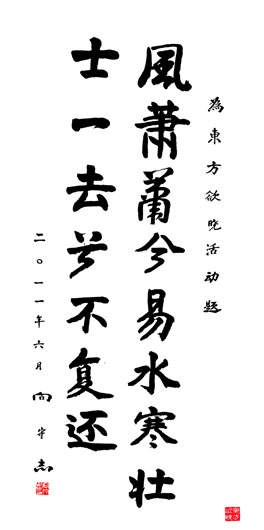 為東方欲晓活动题
風蕭蕭兮易水寒壮
士一去兮不复还
二〇一一年六月 向守志